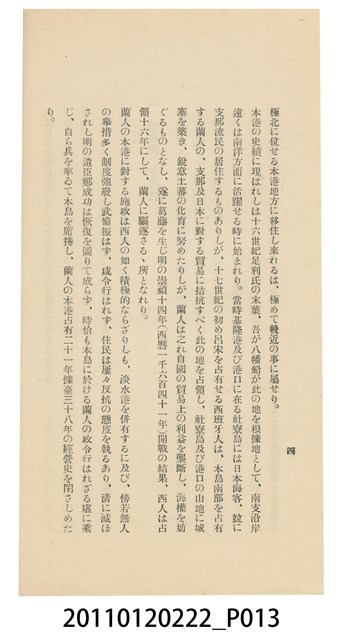 四
極北に位せる本港地方に移住し來れるは、極めて輓近の事に屬せり。
本港の史績に現はれしは十六世紀足利氏の末葉、吾が八幡船が此の地を根據地として、南支沿岸
遠くは南洋方面に活躍せる時に始まれり。當時基隆港及び港口に在る社寮島には日本海客、竝に
支那流民の居住するものありしが、十七世紀の初め呂宋を占有せる西班牙人は、本島南部を占有
する蘭人の、支那及日本に對する貿易に拮抗すべく此の地を占領し、社寮島及び港口の山地に城
塞を築き、銳意土蕃の化育に努めたりしが、蘭人は之れ自國の貿易上の利益を壟斷し、海權を妨
ぐるものとなし、遂に葛藤を生じ明の崇禎十四年(西曆一千六百四十一年)開戰の結果、西人は占
領十六年にして、蘭人に驅逐さる、所となれり。
蘭人の本港に對する施政は西人の如く積極的ならざりしも、淡水港を併有するに及び、傍若無人
の擧措多く制度弛廢し武備振はず、威令行はれず、住民は屢々反抗の態度を執るあり、淸に滅ほ
されし明の遺臣鄭成功は恢復を圖りて成らず、時恰も本島に於ける蘭人の政令行はれざる虛に乘
じ、自ら兵を率ゐて本島を席捲し、蘭人の本港占有二十一年據臺三十八年の經營史を閉さしめた
り。
20110120222_P013